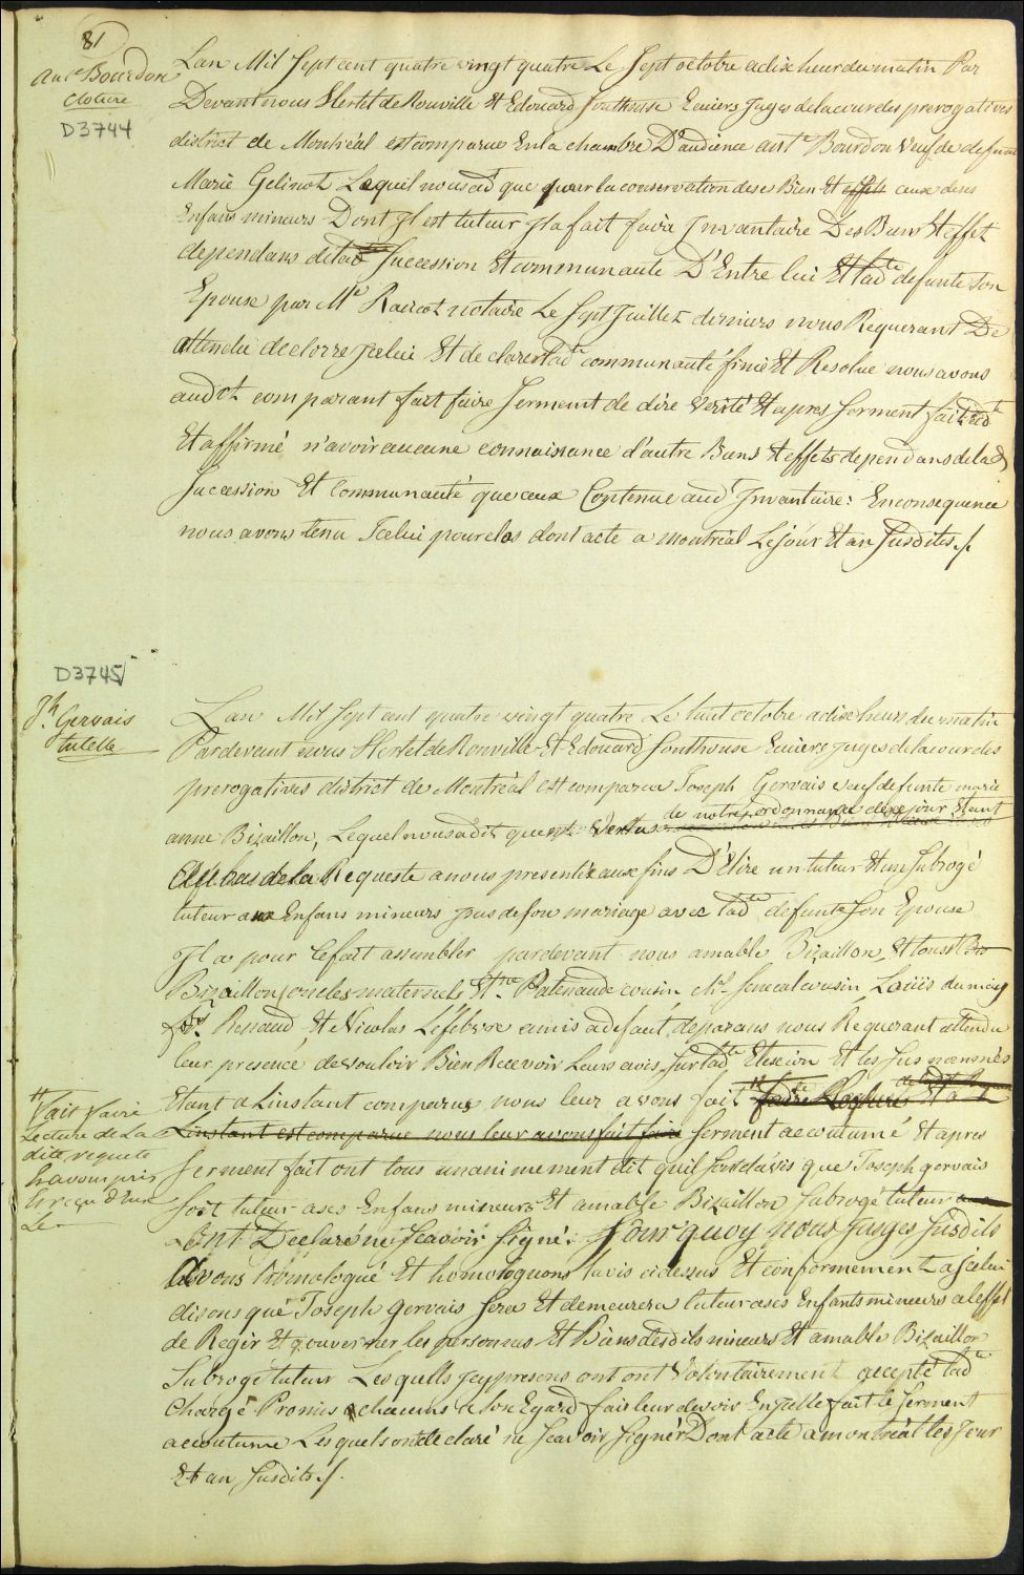 81
Ant<sup>e</sup> Bourdon
Cloture
D3744
Lan Mil Sept cent quatre vingt quatre Le Sept octobre a dix heur du matin Par
Devant nous Hertel de Rouville Et Edouard Southouse Ecuiers Juges de la cour des prerogatives
district de Montréal est comparue En la chambre D'audience ant<sup>e</sup> Bourdon Veuf de defunte
Marie Gelinot Lequel nous a dit que pour la conservation de ses Bien Et effets ceux de ses
Enfans mineurs Dont Jl est tuteur Jl a fait faire Jnvantaire Des Biens Et effet
dependans de lad Succession Et communauté D'Entre lui Et lad<sup>te</sup> defunte Son
Epouse par M<sup>e</sup> notaire Le Sept Juillet derniers nous Requerant De
attendu declorre Jcelui Et de clarer lad<sup>te</sup> communauté finie Et Resolue nous avons
aud<sup>t</sup> comparant fait faire Serment de dire verité Et apres Serment fait
Et affirmé n'avoir aucune connaissance d'autre Biens Et effets dependans de lad
Succession Et Communauté que ceux Contenue aud<sup>t</sup> Jnvantaire: En consequence
nous avons tenu Jcelui pour clos dont acte a Montréal Le jour Et an Susdites ./.
D3745
J<sup>h</sup> Gervais
tutelle
Lan Mil Sept cent quatre vingt quatre Le huit octobre a dix heurs du matin
Pardevant nous Hertel de Rouville Et Edouard Southouse Ecuiers juges de la cour des
prerogatives district de Montréal est comparu Joseph Gervais veuf defunte marie
de notre ordonnance de ce jour Etant
anne Bizaillon, Lequel nous a dit qu'en Vertu
Au bas de la Requeste a nous presentée aux fins D'Élire un tuteur Et un Subrogé
tuteur aux Enfans mineurs jssus de son mariage avec lad<sup>te</sup> defunte Son Epouse
Jl a pour Cefait assembler pardevant nous amable Bizaillon, Et
Bizaillon oncles maternels Patenaude cousin, Senecal cousin, Loüis dumay
Renaud Et Nicolas Lefebvre amis a defaut de parans nous Requerant attendu
leur presence de vouloir Bien Recevoir Leurs avis Sur lad<sup>te</sup> Election Et les Sus nommés
Etant a Linstant comparus nous leur avons fait
Linstant est comparue nous leur avons fait faire Serment accoutumé Et apres
fait faire
Lecture de La
dite requete
Serment fait ont tous unanimement dit quil Sont d'avis que Joseph gervais
Soit tuteur a ses Enfans mineurs Et amable Bizaillon Subrogé tuteur
ont Declaré ne Scavoir Signé: Pour quoy nous Juges Susdits
Avons homologué Et homologuons lavis cidessus Et conformement a Jcelui
disons que Joseph gervais Sera Et demeurera tuteur a ses Enfants mineurs a leffet
de Regir Et gouverner les personnes Et Biens desdits mineurs Et amable Bizaillon
Subrogé tuteur Lesquells Jcy presens ont ont Volontairement accepté lad<sup>te</sup>
Charge Promis chacuns a Son Egard fair leur devoir En Jcelle fait le Serment
accoutumé Lesquels ont declaré ne Scavoir Signér Dont acte a montréal les Jour
Et an Susdits ./.